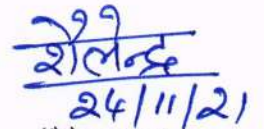 शैलेन्द्र
24/11/21